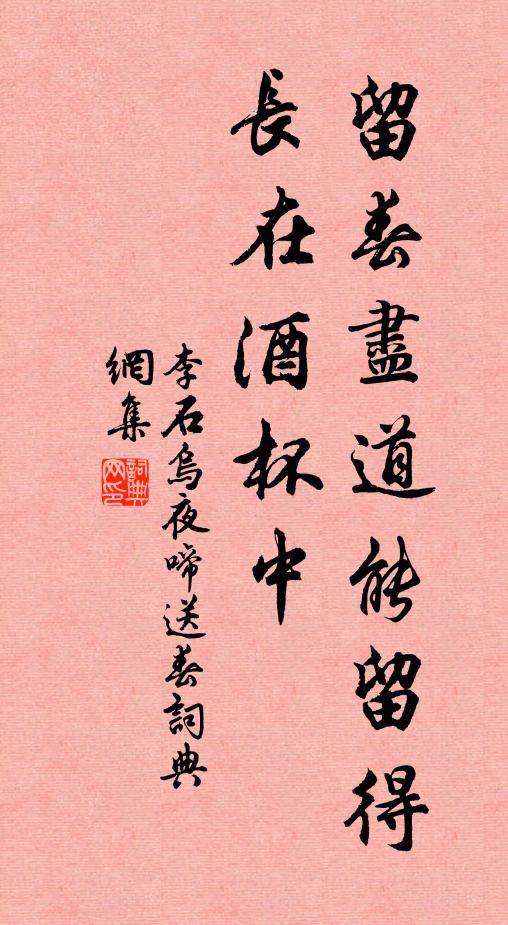 留春盡道能留得
長在酒杯中
李石烏夜啼送春詞典
網集
詞典網印